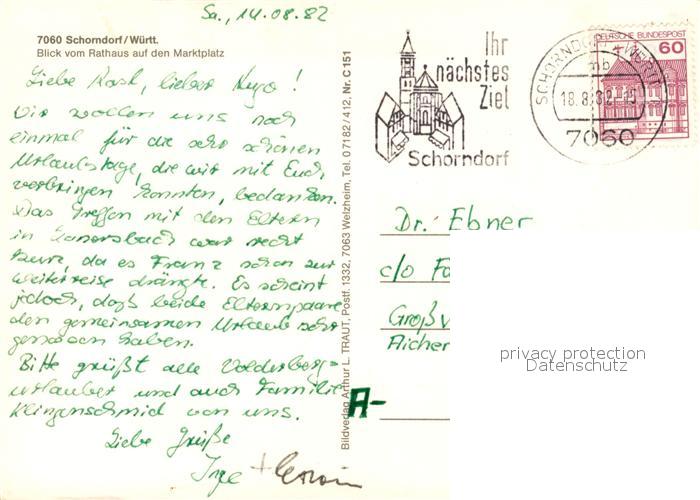 Sa., 14.08.82
7060 Schorndorf/Württ.
Blick vom Rathaus auf den Marktplatz
Liebe Rosl, lieber Hugo!
Wir wollen uns noch
einmal für die sehr schönen
Urlaubstage, die wir mit Euch
verbringen konnten, bedanken.
Das Treffen mit den Eltern
in war recht
kurz, da es Franz schon zur
Weiterreise drängte. Es scheint
jedoch, daß beide Elternpaare
den gemeinsamen Urlaub sehr
genossen haben.
Bitte grüßt alle Volderberg-
urlauber und auch Familie
Klingenschmid von uns.
Liebe Grüße
Inge + Erwin
Bildverlag Arthur L. TRAUT, Postf. 1332, 7063 Welzheim, Tel. 07182/412, Nr. C 151
Ihr
nächstes
Ziel
Schorndorf
SCHORNDORF, WÜRTT
mb
18.8.82-15
7060
DEUTSCHE BUNDESPOST
60
Dr. Ebner
c/o Fa
Großv
Aicher
A-
privacy protection
Datenschutz